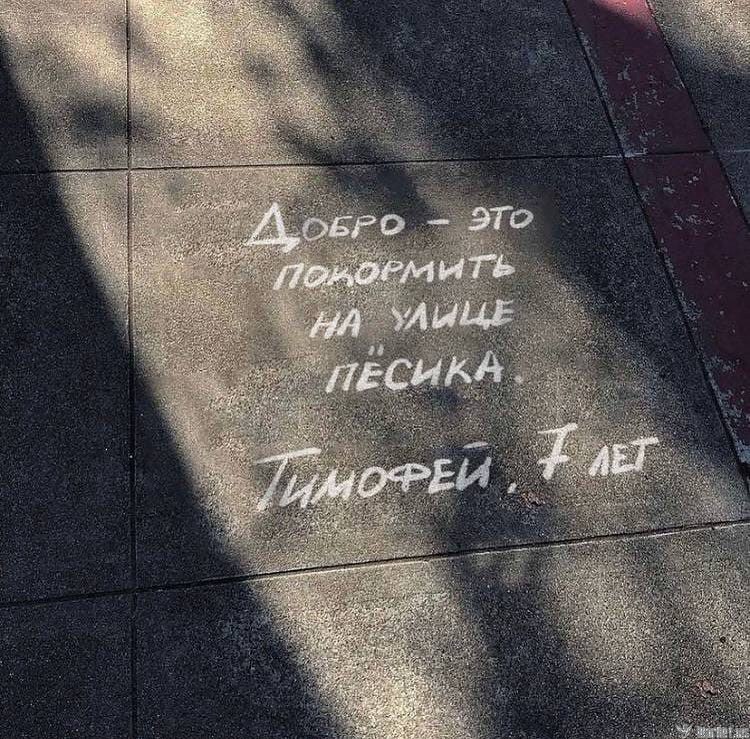 Добро – это
покормить
на улице
пёсика.
Тимофей, 7 лет